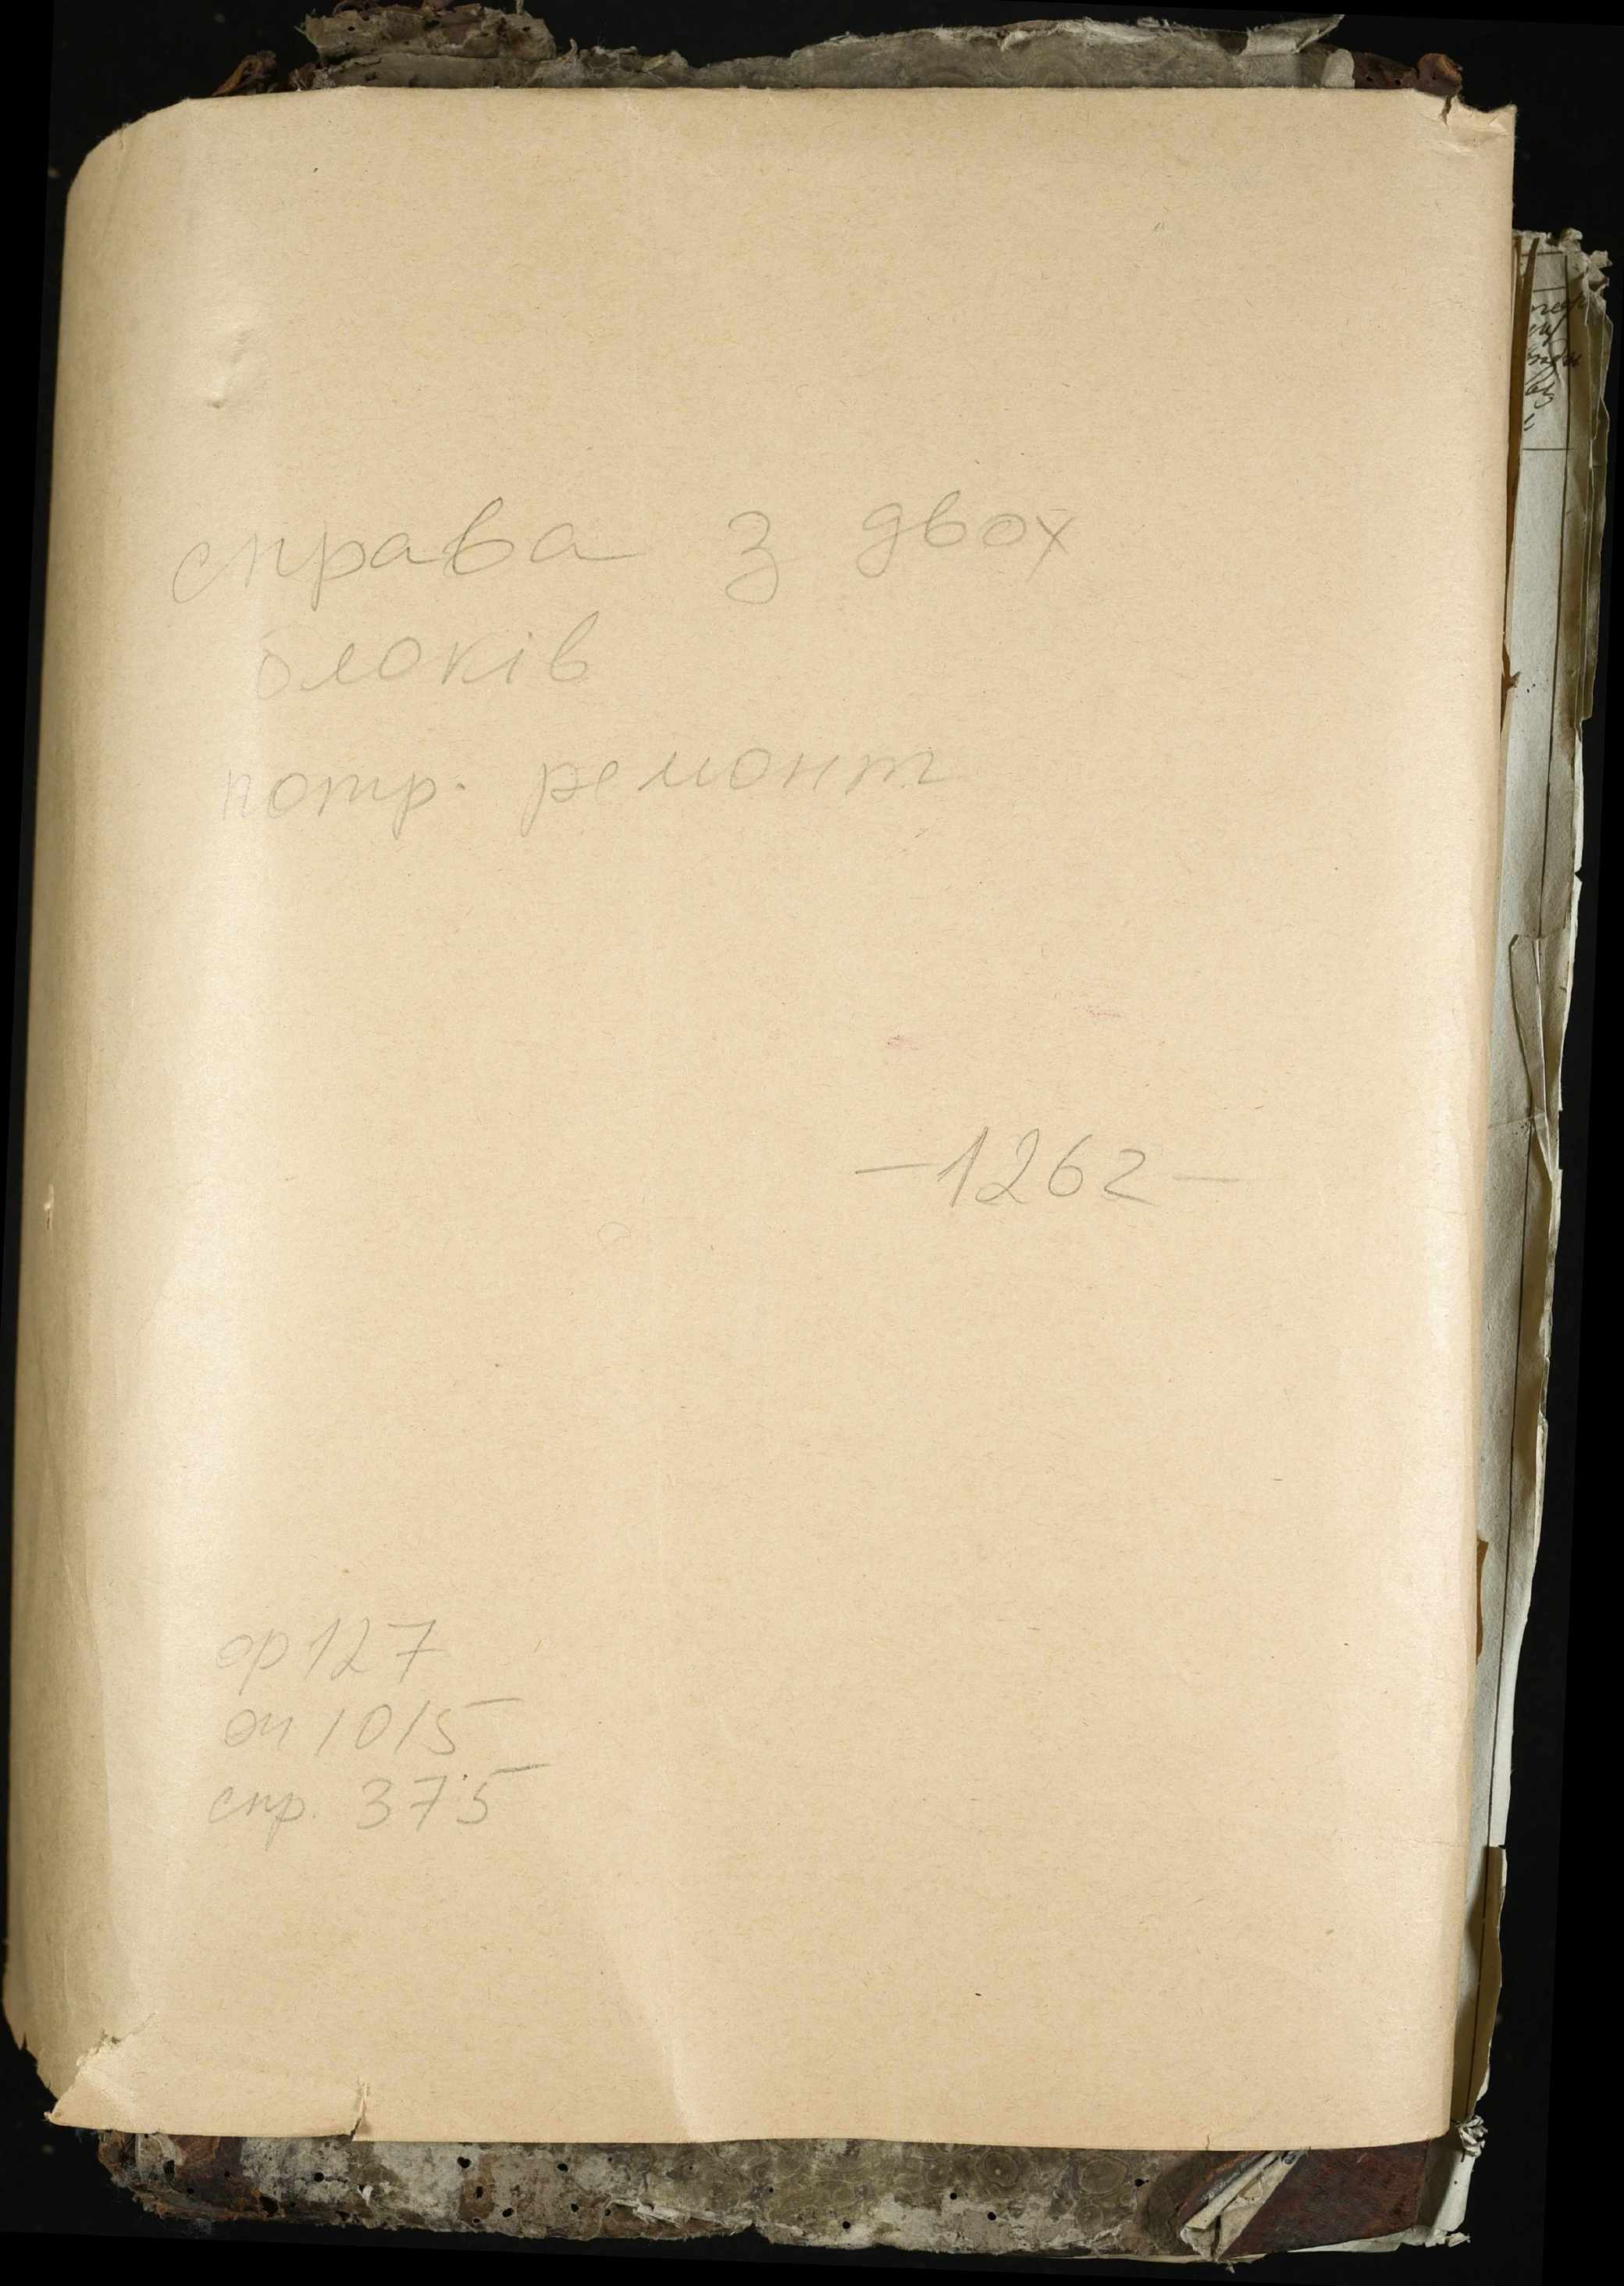 справа з двох
блоків
потр. ремонт
-1262-
ф 127
оп 1015
спр. 375